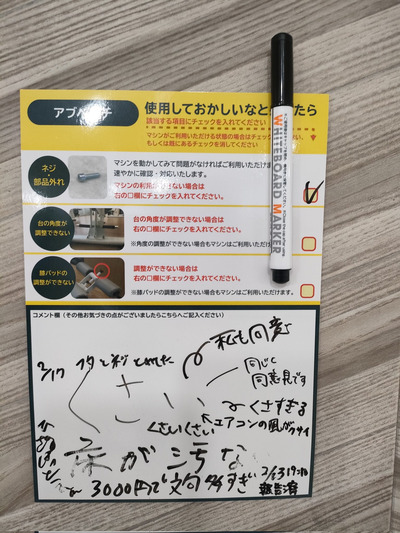 アブベンチ
使用しておかしいなと
たら
該当する項目にチェックを入れてください
マシンがご利用いただける状態の場合はチェック
もしくは既にあるチェックを消してください
ネジ・部品外れ
マシンを動かしてみて問題がなければご利用いただけます
速やかに確認・対応いたします。
マシンの利用ができない場合は
右の□欄にチェックを入れてください。
台の角度が調整できない
台の角度が調整できない場合は
右の□欄にチェックを入れてください。
※角度の調整ができない場合もマシンはご利用いただけ
膝パッドの調整ができない
調整ができない場合は
右の□欄にチェックを入れてください。
※膝パッドが調整できない場合もマシンはご利用いただけます。
WHITEBOARD MARKER
コメント欄（その他お気づきの点がございましたらこちらへご記入ください）
私も同意
2/17 フタとネジとれてた
同じく
同意見です
くさい
〜くさすぎる
くさいくさい
エアコンの風がクサイ
床が汚な
3000円で文句多すぎ
報告済